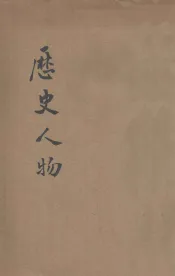 歷史人物